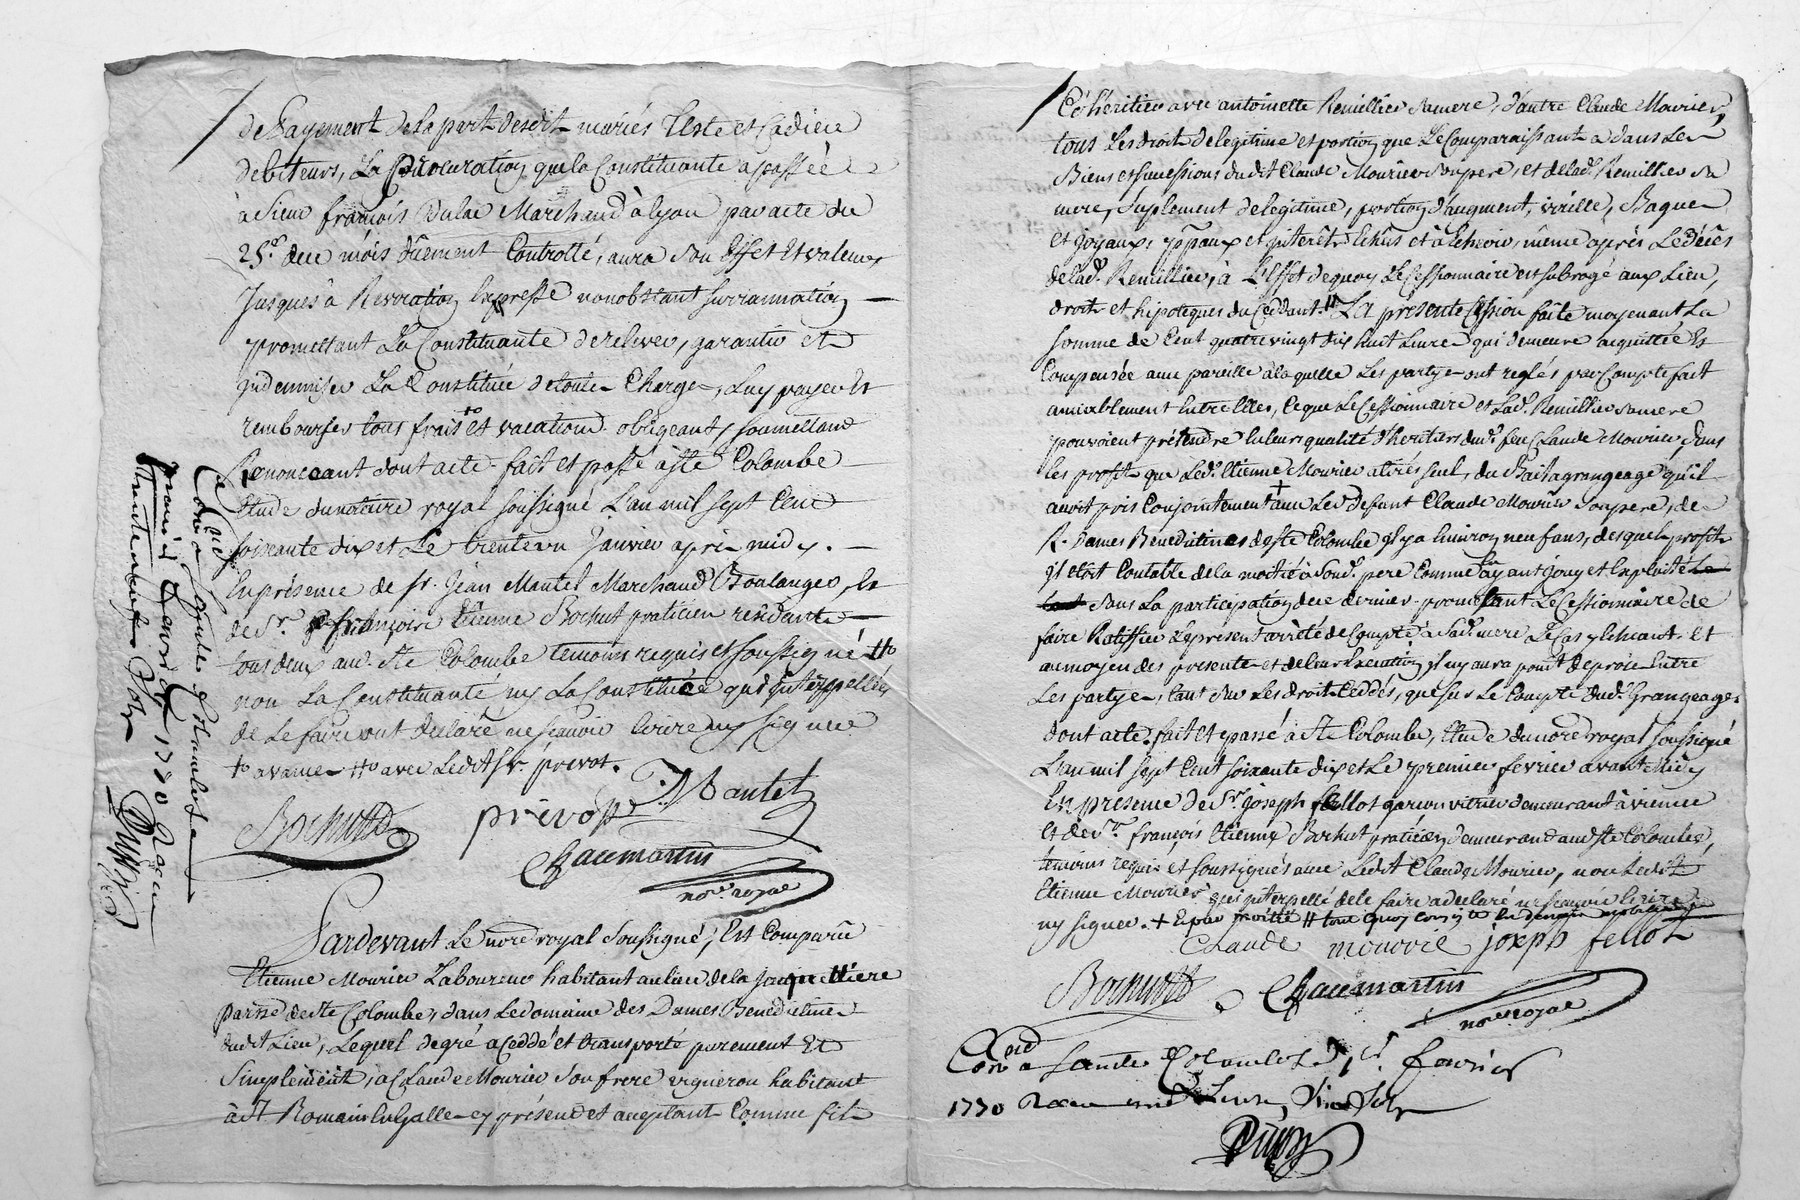 de Payement de la part desdit mariés Teste et Cadiere
debiteurs, La Procuration que la Constituante a passée
à Sieur françois Dulac Marchand à lyon par acte du
25e. dece mois dûement Controllé, aura Son Effet Et valeur
Jusques à Revocation Expresse nonobstant surrannation
promettant La Constituante de relever, garantir et
indemniser La Constituée detoute Charge, Luy payer Et
rembourser tous frais et vacations obligeant, soumettant
Renonceant dont acte fait et passé à Ste Colombe
Etude du notaire royal soussigné L'an mil sept Cent
soixante dix et Le trente un Janvier après midy.
En présence de sr. Jean Mantel Marchand Boulanger, Et
de Sr. françois Etienne Bochut praticien residants
tous deux aud. Ste Colombe temoins requis et soussignés #
non La Constituante, ny La Constituée qui interpellées
de Le faire ont declaré ne scavoir Ecrire ny signer
# avec Ledit Sr. prévot.
J Mantel
Bochutt prévost
Chaumartin
nore royal
Cond à Sainte Colombe Le
premier fevrier 1770 Recu
trente neuf Sols
Dupuy
Pardevant Le nore royal Soussigné, Est Comparû
Etienne Mourier Laboureur habitant au lieu de la Jaquettiere
parsse de Ste Colombe, dans Le domaine des Dames Benedictines
dudit Lieu, Lequel de gré a Ceddé et transporté purement Et
Simplement, a Claude Mourier Son frere vigneron habitant
à St Romain En Galle cy présent et acceptant Comme fils
Cohéritier avec antoinette Remillier Sa mere, d'autre Claude Mourier,
tous Les droits de legitime et portion que Le Comparaissant a dans Les
Biens et successions dudit Claude Mourier Son pere, et de lad. Remillier Sa
mere, Suplement de legitime, portion d'augment, virille, Bagues
et Joyaux, ppaux et interêts Echûs et à Echeoir, même après Le décès
de lad. Remillier, à L'effet de quoy Le Cessionnaire est subrogé aux Lieu,
droits et hipoteques du Ceddant. # La présente Cession faite moyenant La
somme de Cent quatre vingt dix huit Livres qui demeure acquittée Et
Compensée avec pareille à laquelle Les partyes ont reglés par Compte fait
amiablement Entre Elles, Ce que Le Cessionnaire et Lad. Remillier Sa mere
pouvoient prétendre En leurs qualité d'heritiers dud. feu Claude Mourier, dans
les profits que Led. Etienne Mourier a tirés seul, du Bail a grangeage qu'il
avoit pris Conjointement + avec Led. defunt Claude Mourier Son pere, des
R. Dames Benedictines de Ste Colombe il y a Environ neuf ans, desquels profits
il etoit Contable de la moitié à Sond. pere Comme ayant jouy et Exploité Le
tout Sans La participation de ce dernier. promettant Le Cessionnaire de
faire Ratiffier Le present arrêté de Compte à Sad. mere Le Cas y Echeant. Et
au moyen des presentes et de leur Execution, il ny aura point de procès Entre
Les partyes, tant Sur Les droits Ceddés, que Sur Le Compte dud. Grangeage.
dont acte. fait et passé à Ste Colombe, Etude du nore royal soussigné
L'an mil sept Cent soixante dix et Le premier fevrier avant Midy
En présence de Sr. joseph fellot garcon vitrier demeurant à vienne
et de Sr. françois Etienne Bochut praticien demeurant aud. Ste Colombe,
temoins requis et soussignés avec Ledit Claude Mourier, non Ledit
Etienne Mourier qui interpellé de le faire a declaré ne scavoir Ecrire
ny signer. + Et par moitié # tout quoy
Claude mourrié joseph fellot
Bochutt Chaumartin
nore royal
Cond à Sainte Colombe Le 1er. fevrier
1770 Recu une Livre Six Sols
Dupuy